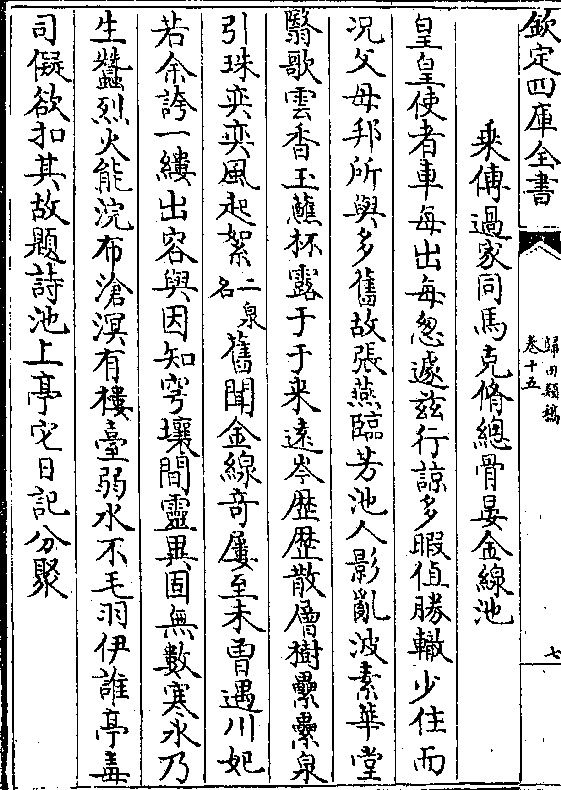 欽定四庫全書
歸田類稿
卷十五
七
乘傳過家同馬克脩總骨晏金線池
皇皇使者車每出每怱遽兹行諒多暇值勝轍少住而
況父母邦所與多舊故張燕臨芳池人影亂波素華堂
翳歌雲香玉蘸杯露于于来遠岑歴歴散層樹纍纍泉
引珠奕奕風起絮二泉名舊聞金線竒屢至未曽遇川妃
若余誇一縷出容與因知穹壤間靈異固無數寒氷乃
生蠶烈火能浣布滄溟有樓臺弱水不毛羽伊誰亭毒
司儗欲扣其故題詩池上亭它日記分聚